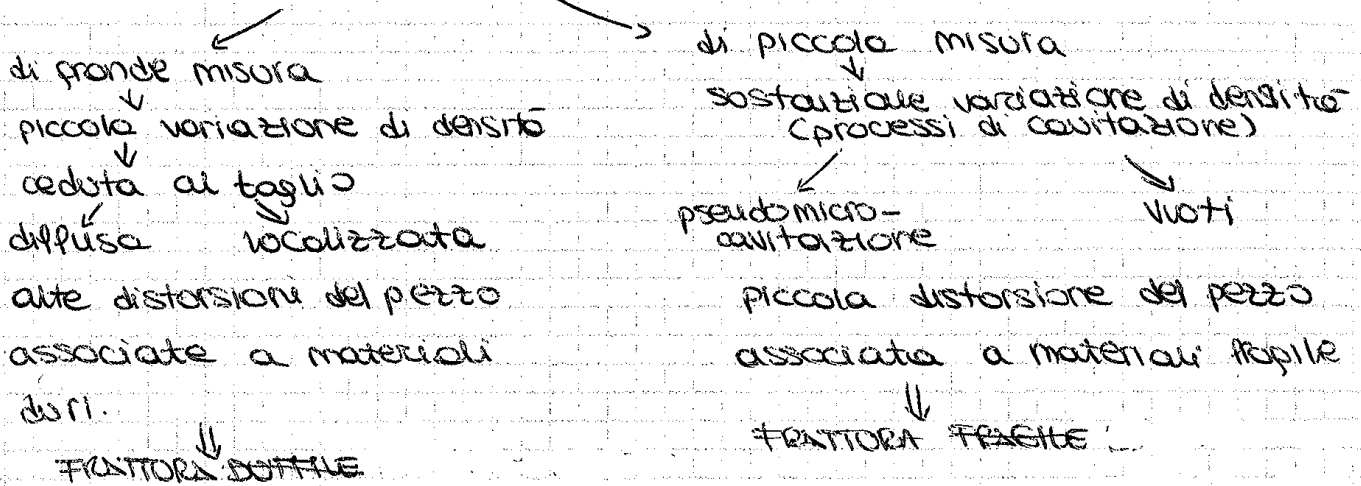 di grande misura
piccola variazione di densità
ceduta al taglio
diffusa localizzata
alte distorsioni del pezzo
associate a materiali
duri.
FRATTURA DUTTILE
di piccola misura
sostanziale variazione di densità
(processi di cavitazione)
pseudomicro-
cavitazione
vuoti
piccola distorsione del pezzo
associata a materiali fragile
FRATTURA FRAGILE